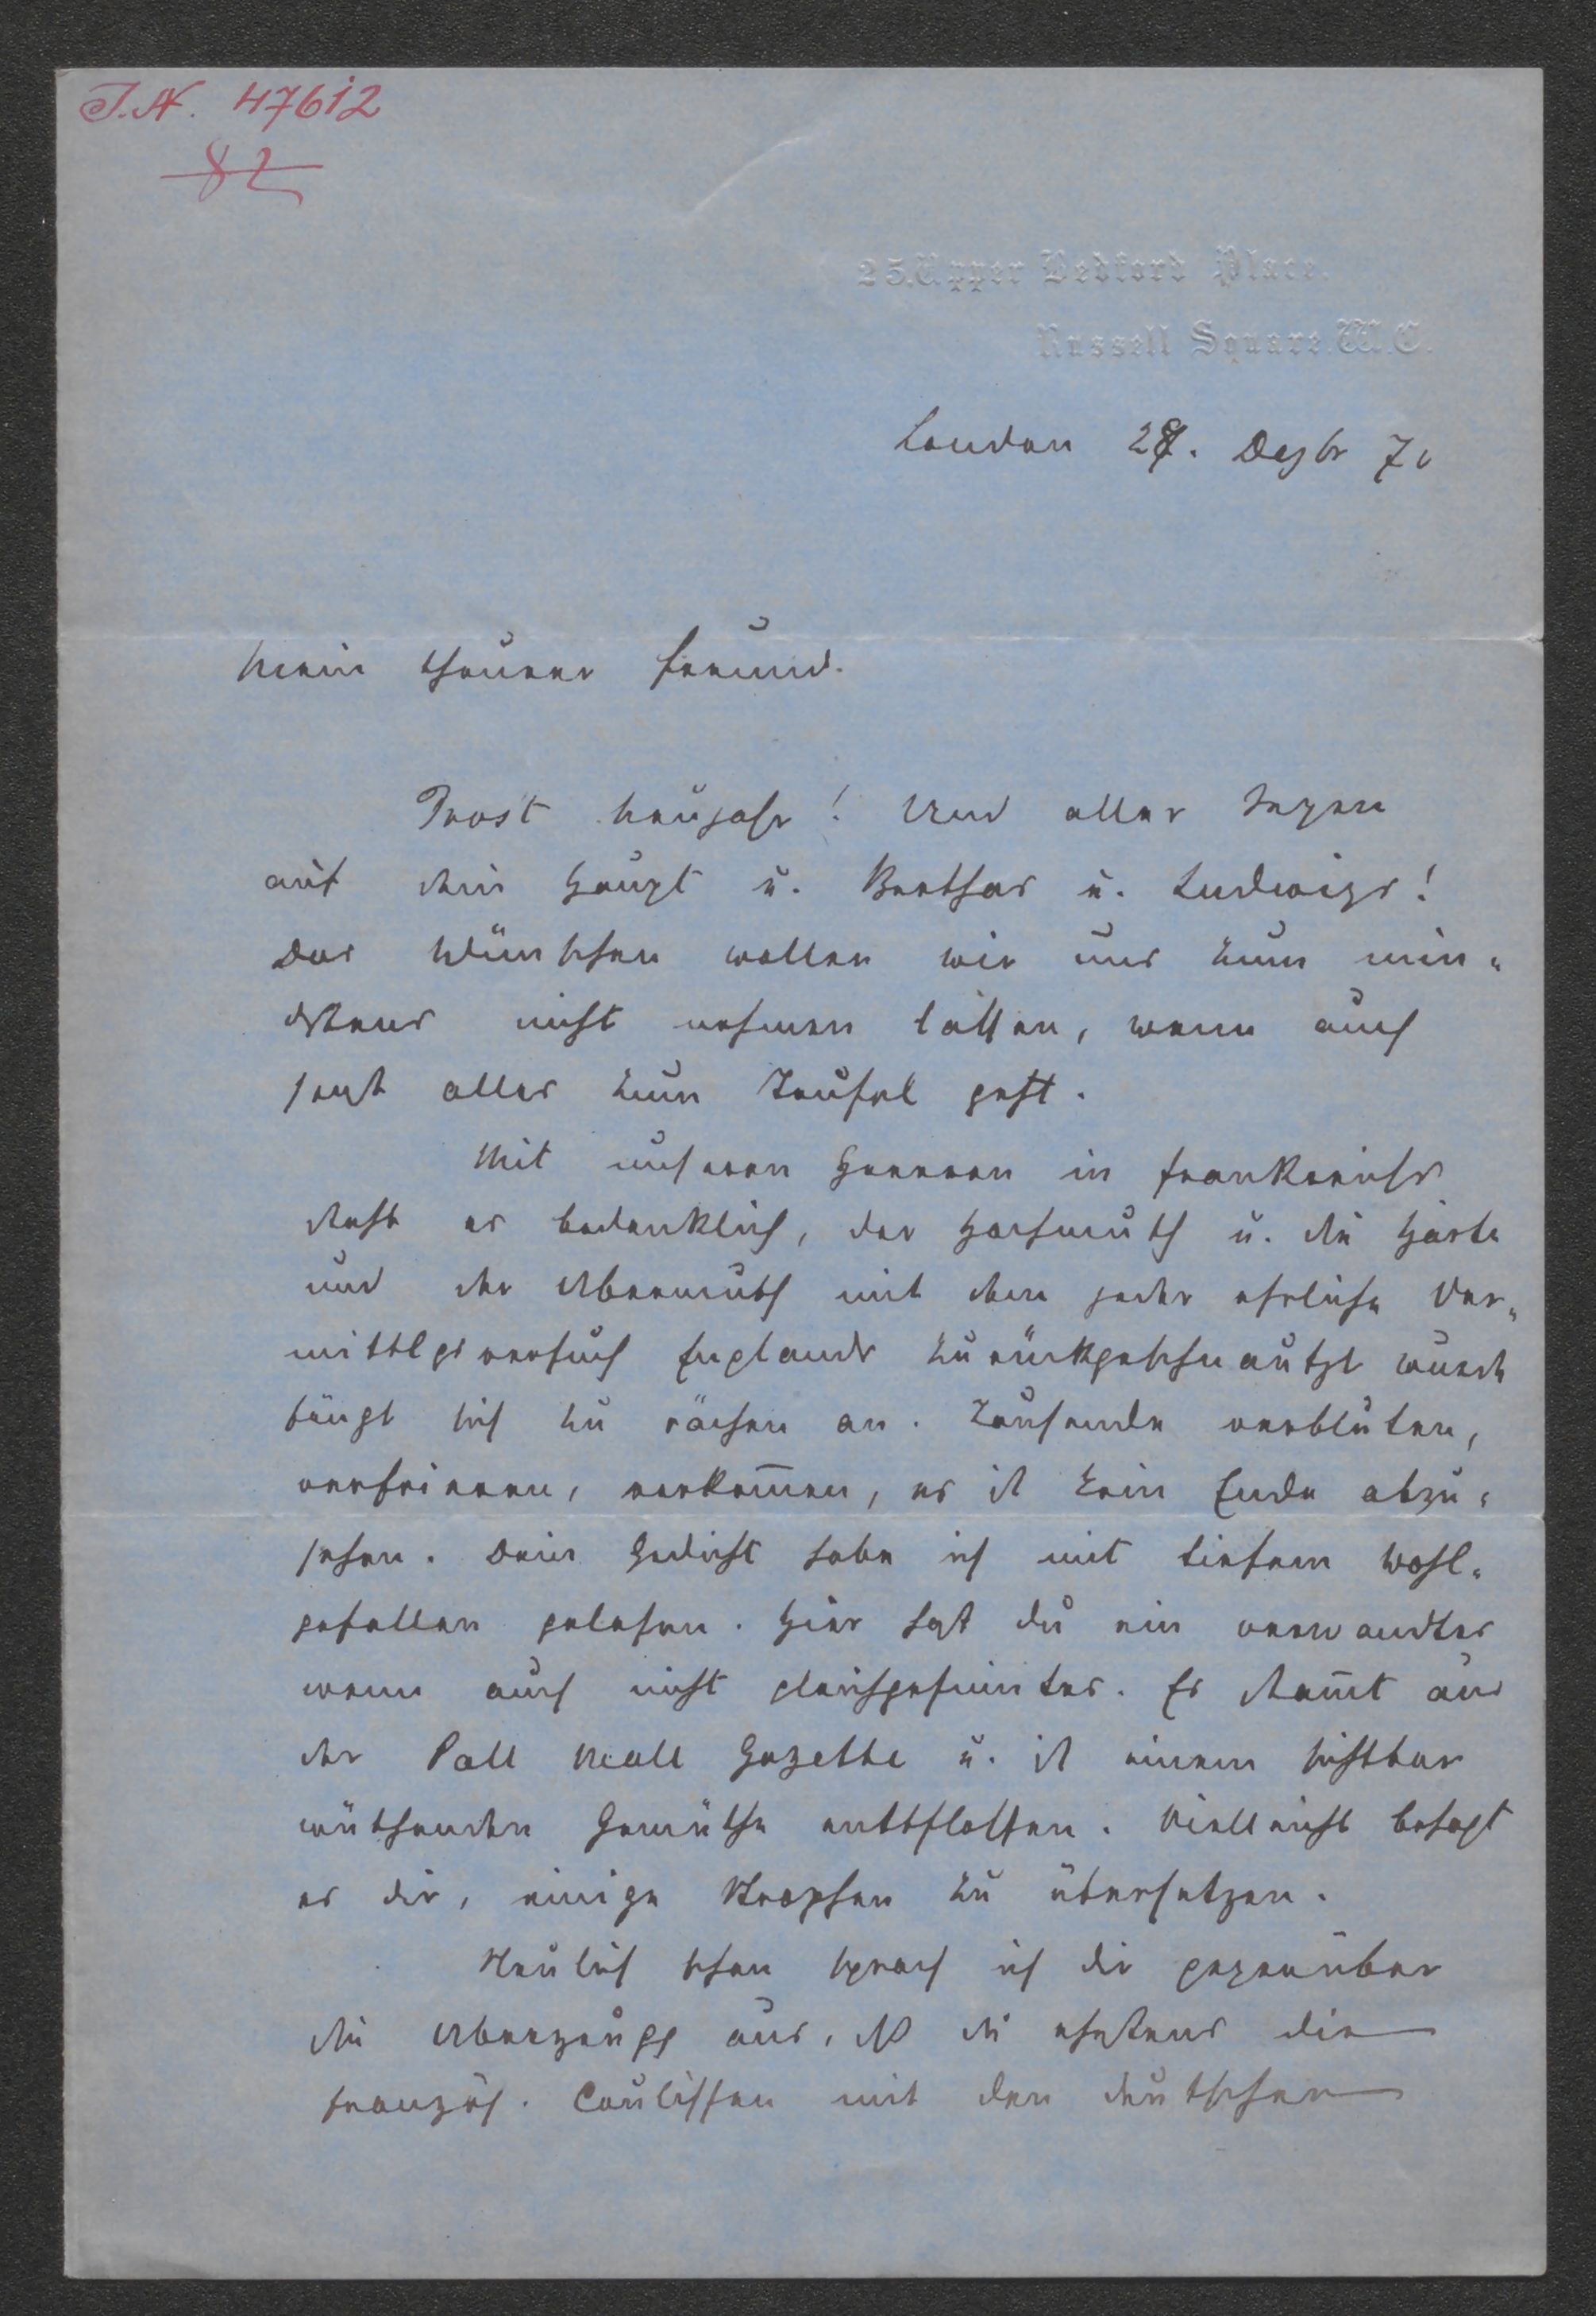 J.N. 47612
82
25. Upper Bedford Place.
Russell Square. W.C.
London 27. Dezbr 70
Mein theurer Freund.
Prost Neujahr! Und aller Segen
auf dein Haupt u. Berthas u. Ludwigs!
Das Wünschen wollen wir uns zum min-
destens nicht nehmen lassen, wenn auch
sonst alles zum Teufel geht.
Mit unseren Heeren in Frankreich
steht es bedenklich, der Hochmuth u. die Härte
und der Übermuth mit dem jeder ehrliche Ver-
mittlgsversuch Englands zurückgeschnautzt wurde
fängt sich zu rächen an. Tausende verbluten,
erfrieren, verkom̅en, es ist kein Ende abzu-
sehen. Dein Gedicht habe ich mit tiefem Wohl-
gefallen gelesen. Hier hast du ein verwandtes
wenn auch nicht gleichgesinntes. Es stam̅t aus
der Pall Mall Gazette u. ist einem sichtbar
wüthenden Gemüthe entflossen. Vielleicht behagt
es dir, einige Strophen zu übersetzen.
Neulich schon sprach ich dir gegenüber
die Überzeugg aus, daß du ehestens die
französ. Coulissen mit den deutschen